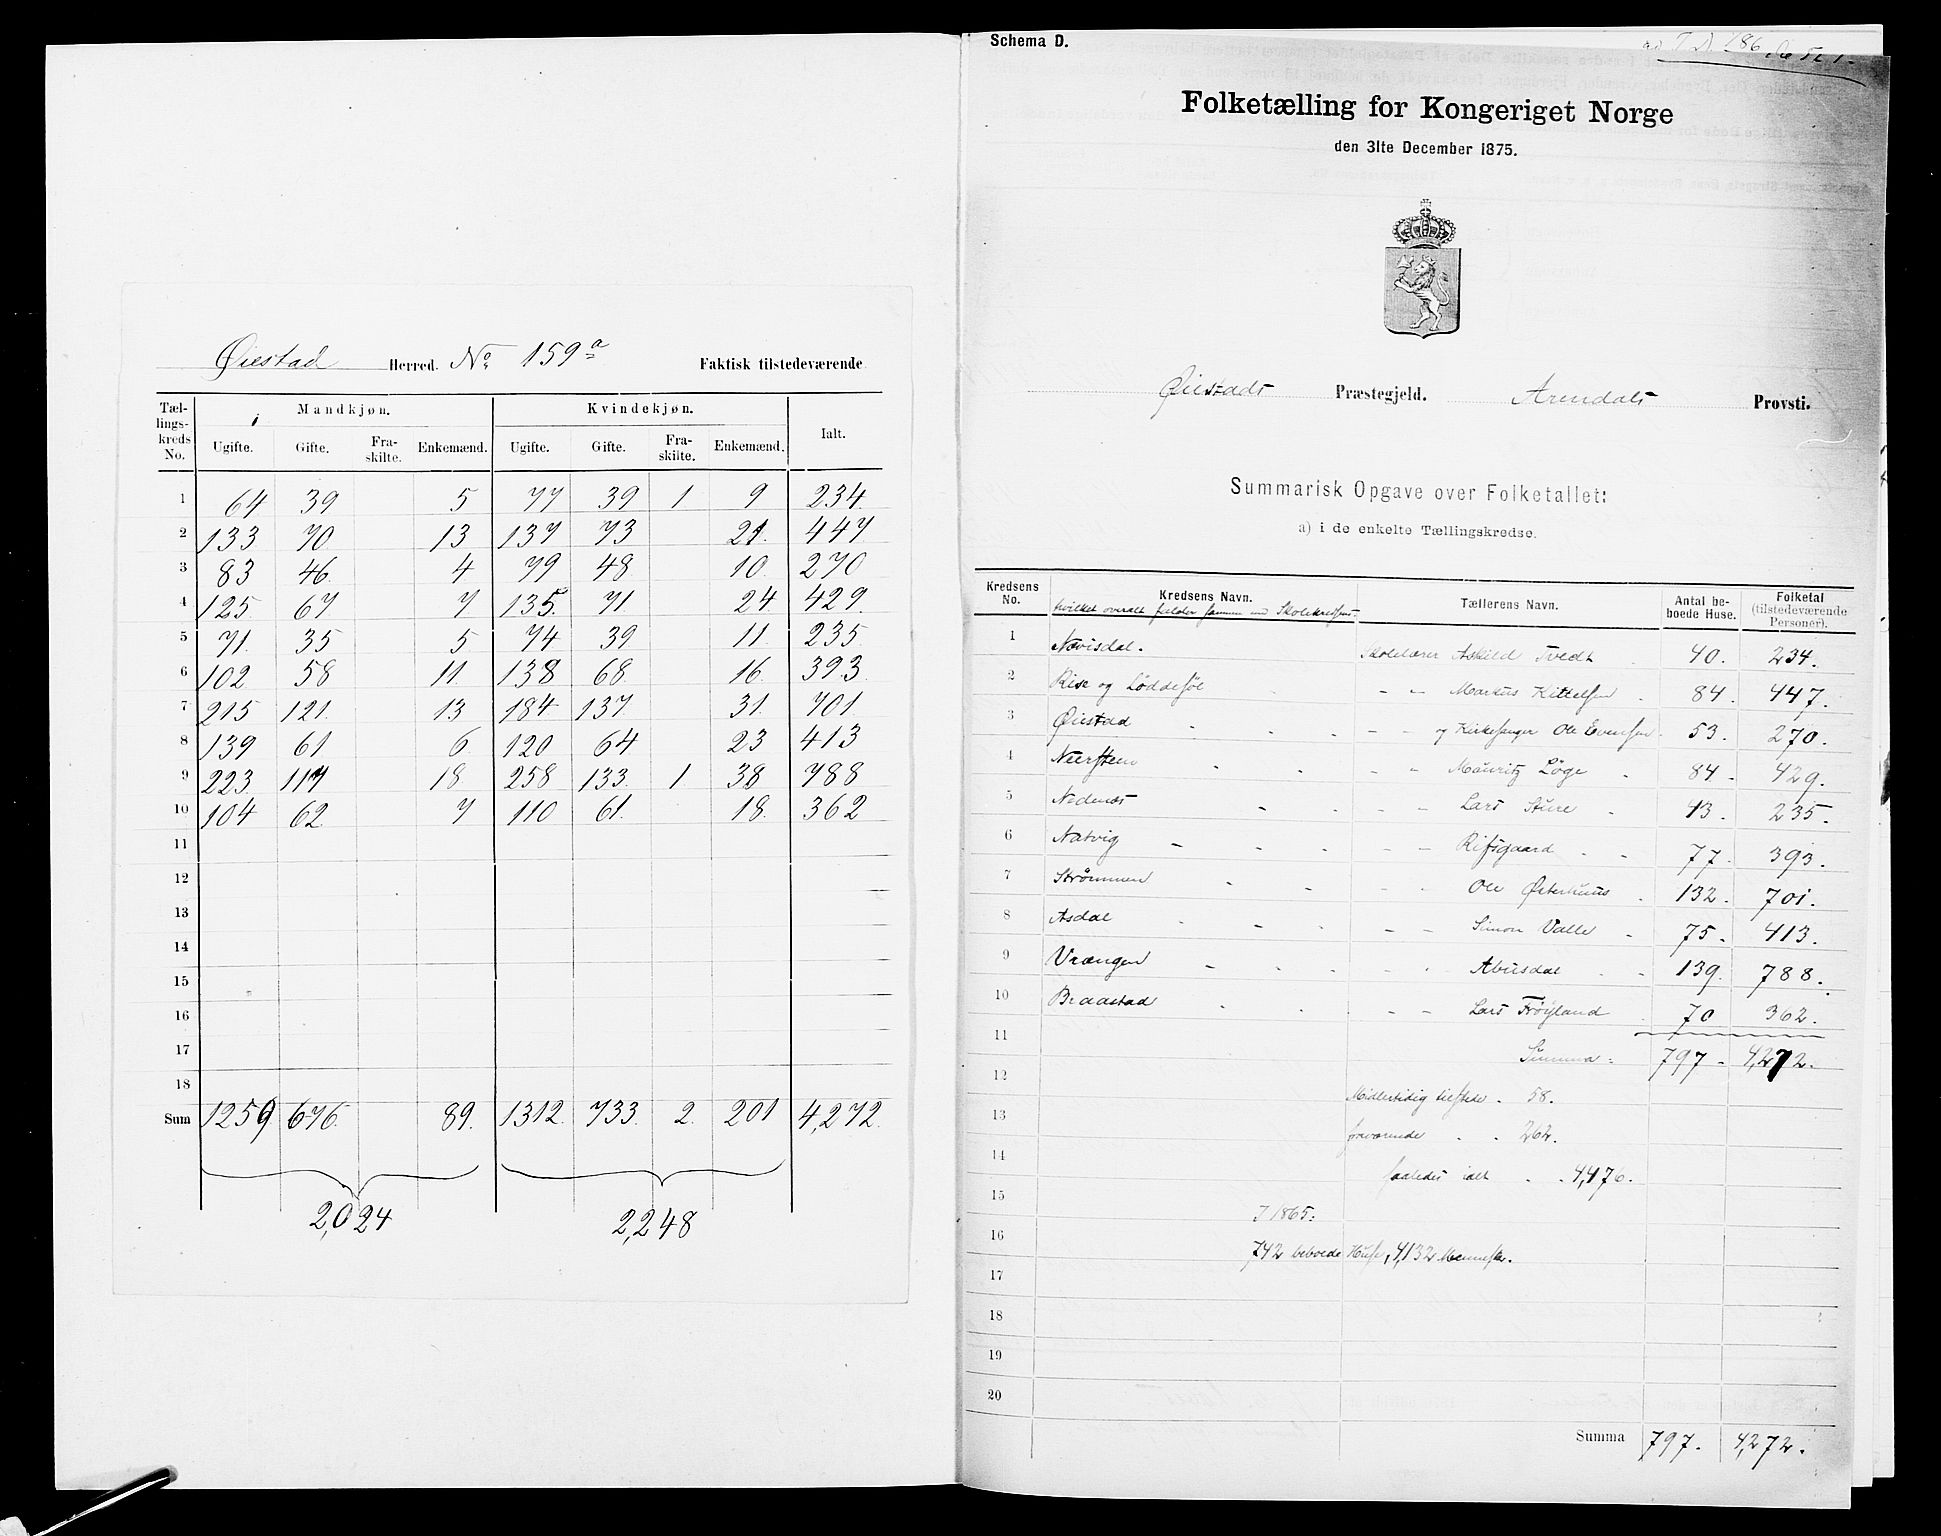 Øiestad Herred. No 159 a Faktisk tilstedeværende
Tæl-lings-kreds No. Mandkjøn. Kvindekjøn. Ialt.
Ugifte. Gifte. Fra-skilte. Enkemænd. Ugifte. Gifte. Fra-skilte. Enkemænd.
1 64 39 5 77 39 1 9 234.
2 133 70 13 137 73 21. 447
3 83 46 4 79 48 10. 270
4 125. 67 7 135. 71 24. 429.
5 71. 35 5 74 39 11. 235
6 102 58 11. 138 68 16. 393.
7 215 121. 13 184. 137. 31 701
8 139 61 6 120 64 23 413
9 223. 117 18 258 133. 1 38 788
10 104 62. 7 110 61. 18. 362
11
12
13
14
15
16
17
18
Sum 1259 676. 89. 1312. 733. 2. 201 4,272.
2,024 2,248
Schema D.
Folketælling for Kongeriget Norge
den 31te December 1875.
Øiestads Præstegjeld. Arendals Provsti.
Summarisk Opgave over Folketallet:
a) i de enkelte Tællingskredse.
Kredsens No. Kredsens Navn. Tællerens Navn. Antal be-boede Huse. Folketal (tilstedeværende Personer).
hvilket overalt falder sammen med Skolekredsens.
1 Nævisdal. Skolelærer Askild Tvedt 40. 234.
2 Rise og Løddesøl - - Markus Kittelsen 84. 447.
3 Øiestad - - og Kirkesanger Ole Evensen 53. 270.
4 Neersten - - Mauritz Løge 84. 429.
5 Nedenes - - Lars Sture 43. 235.
6 Natvig - - Risgaard 77. 393.
7 Strømmen - - Ole Østerhuus 132. 701.
8 Asdal - - Simon Valle 75. 413.
9 Vrængen - - Abusdal 139. 788.
10 Braastad - - Lars Frøyland 70 362.
11 Summa 797 4,272.
12 Midlertidig tilstede. 58.
13 fraværende 262.
14 saaledes ialt 4,476.
15 I 1865:
16 742 beboede Huse, 4,132 Mennesker.
17
18
19
20
Summa 797. 4,272.